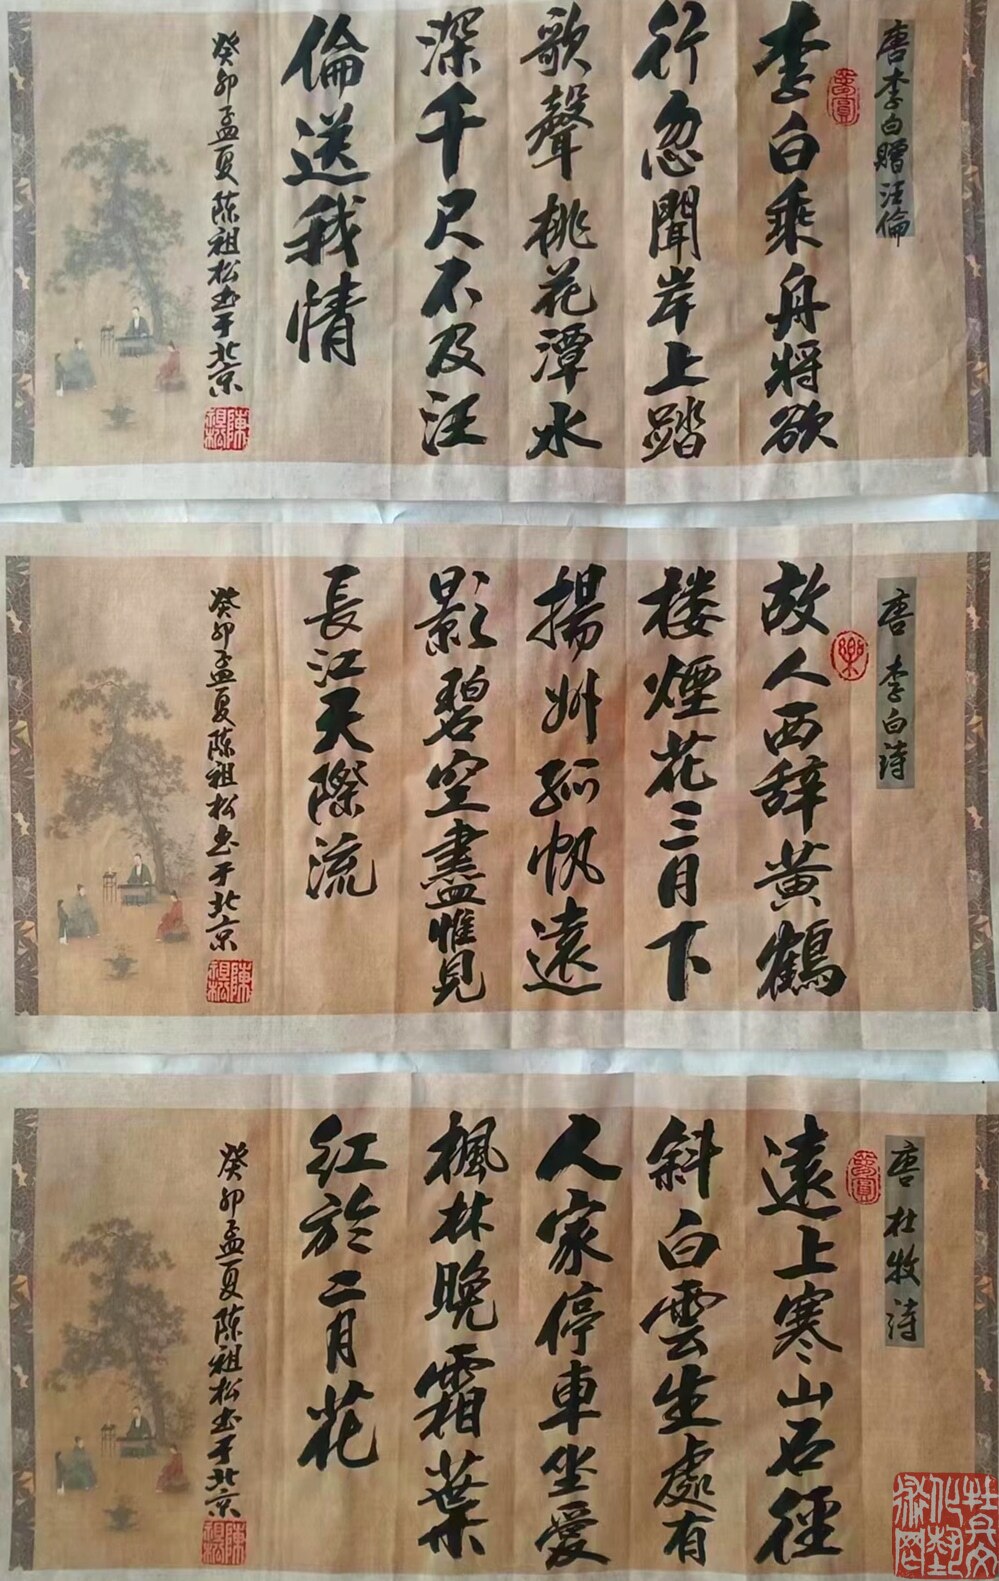 唐李白贈汪倫
李白乘舟將欲
行忽聞岸上踏
歌聲桃花潭水
深千尺不及汪
倫送我情
癸卯孟夏陈祖松书于北京
陳祖松
唐李白詩
故人西辞黄鶴
楼煙花三月下
揚州孤帆遠
影碧空盡惟見
長江天際流
癸卯孟夏陈祖松书于北京
陳祖松
唐杜牧詩
遠上寒山石徑
斜白雲生處有
人家停車坐愛
楓林晚霜葉
红於二月花
癸卯孟夏陈祖松书于北京
陳祖松